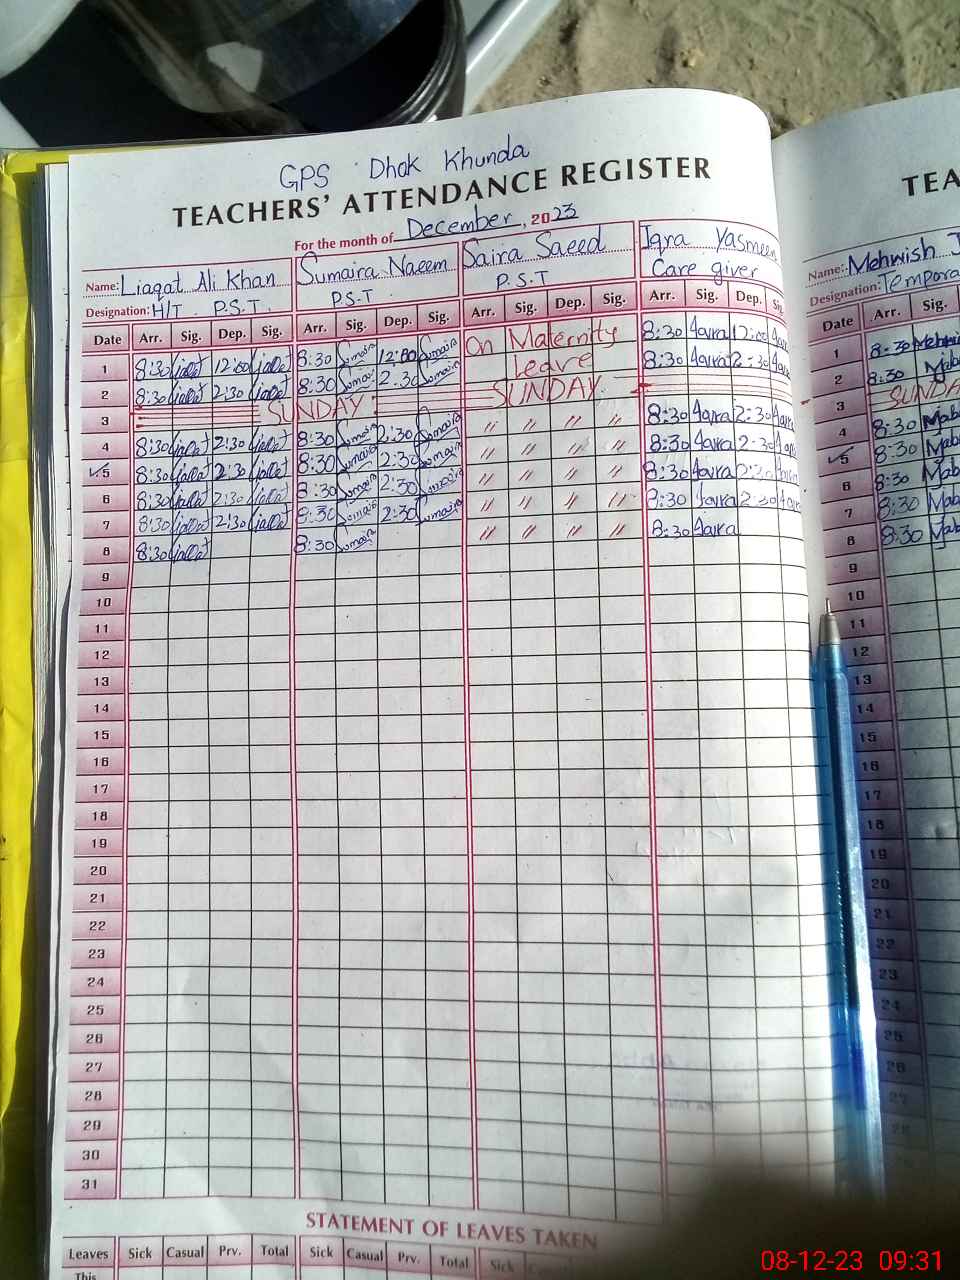 GPS Dhok Khunda
TEACHERS' ATTENDANCE REGISTER
For the month of December, 2023
Name: Liaqat Ali Khan Sumaira Naeem Saira Saeed Iqra Yasmeen
Designation: H/T P.S.T. P.S.T P.S.T Care giver
Date Arr. Sig. Dep. Sig. Arr. Sig. Dep. Sig. Arr. Sig. Dep. Sig. Arr. Sig. Dep. Sig.
1 8:30 12:00 8:30 Sumaira 12:00 Sumaira On Maternity 8:30 Iqra 12:00 Iqra
2 8:30 2:30 8:30 Sumaira 2:30 Sumaira Leave 8:30 Iqra 2:30 Iqra
3 SUNDAY SUNDAY
4 8:30 2:30 8:30 Sumaira 2:30 Sumaira " " " " 8:30 Iqra 2:30 Iqra
5 8:30 2:30 8:30 Sumaira 2:30 Sumaira " " " " 8:30 Iqra 2:30 Iqra
6 8:30 2:30 8:30 Sumaira 2:30 Sumaira " " " " 8:30 Iqra 2:30 Iqra
7 8:30 2:30 8:30 Sumaira 2:30 Sumaira " " " " 8:30 Iqra 2:30 Iqra
8 8:30 8:30 Sumaira " " " " 8:30 Iqra
9
10
11
12
13
14
15
16
17
18
19
20
21
22
23
24
25
26
27
28
29
30
31
STATEMENT OF LEAVES TAKEN
Leaves Sick Casual Prv. Total Sick Casual Prv. Total Sick
This
TEA
Name: Mehwish
Designation: Tempora
Date Arr. Sig.
1 8:30
2 8:30
3 SUNDA
4 8:30
5 8:30
6 8:30
7 8:30
8 8:30
9
10
11
12
13
14
15
16
17
18
19
20
21
22
23
24
25
26
27
28
08-12-23 09:31